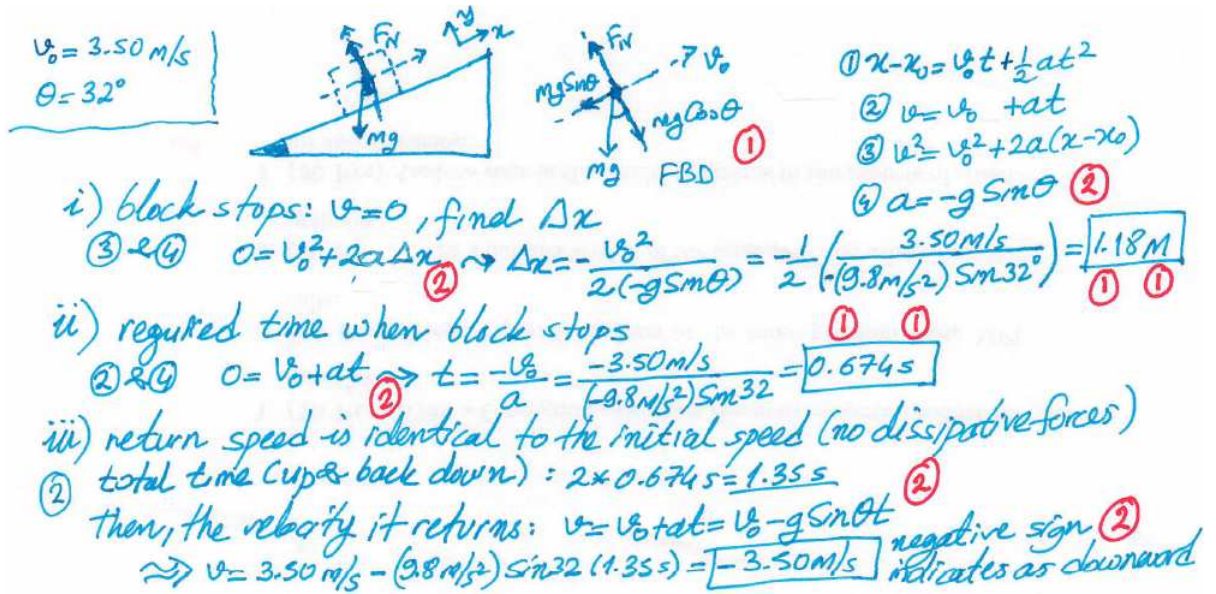 v₀ = 3.50 m/s
θ = 32°
F_N
y
x
mg
F_N
v₀
mg Sinθ
mg Cosθ
mg FBD ①
① x-x₀ = v₀t + ½ at²
② v = v₀ + at
③ v² = v₀² + 2a(x-x₀)
④ a = -g Sinθ ②
i) block stops: v=0, find Δx
③&④ 0 = v₀² + 2aΔx ② ⇝ Δx = - v₀² / 2(-g Sinθ) = - 1/2 ( 3.50 m/s / -(9.8 m/s²) Sin 32° ) = 1.18 M
① ① ① ①
ii) required time when block stops
②&④ 0 = v₀ + at ② ⇝ t = -v₀ / a = -3.50 m/s / (-9.8 m/s²) Sin 32 = 0.674 s
iii) return speed is identical to the initial speed (no dissipative forces)
② total time (up & back down) : 2*0.674 s = 1.35 s ②
Then, the velocity it returns: v = v₀ + at = v₀ - g Sinθt
negative sign ②
⇝ v = 3.50 m/s - (9.8 m/s²) sin 32 (1.35 s) = -3.50 m/s indicates as downward